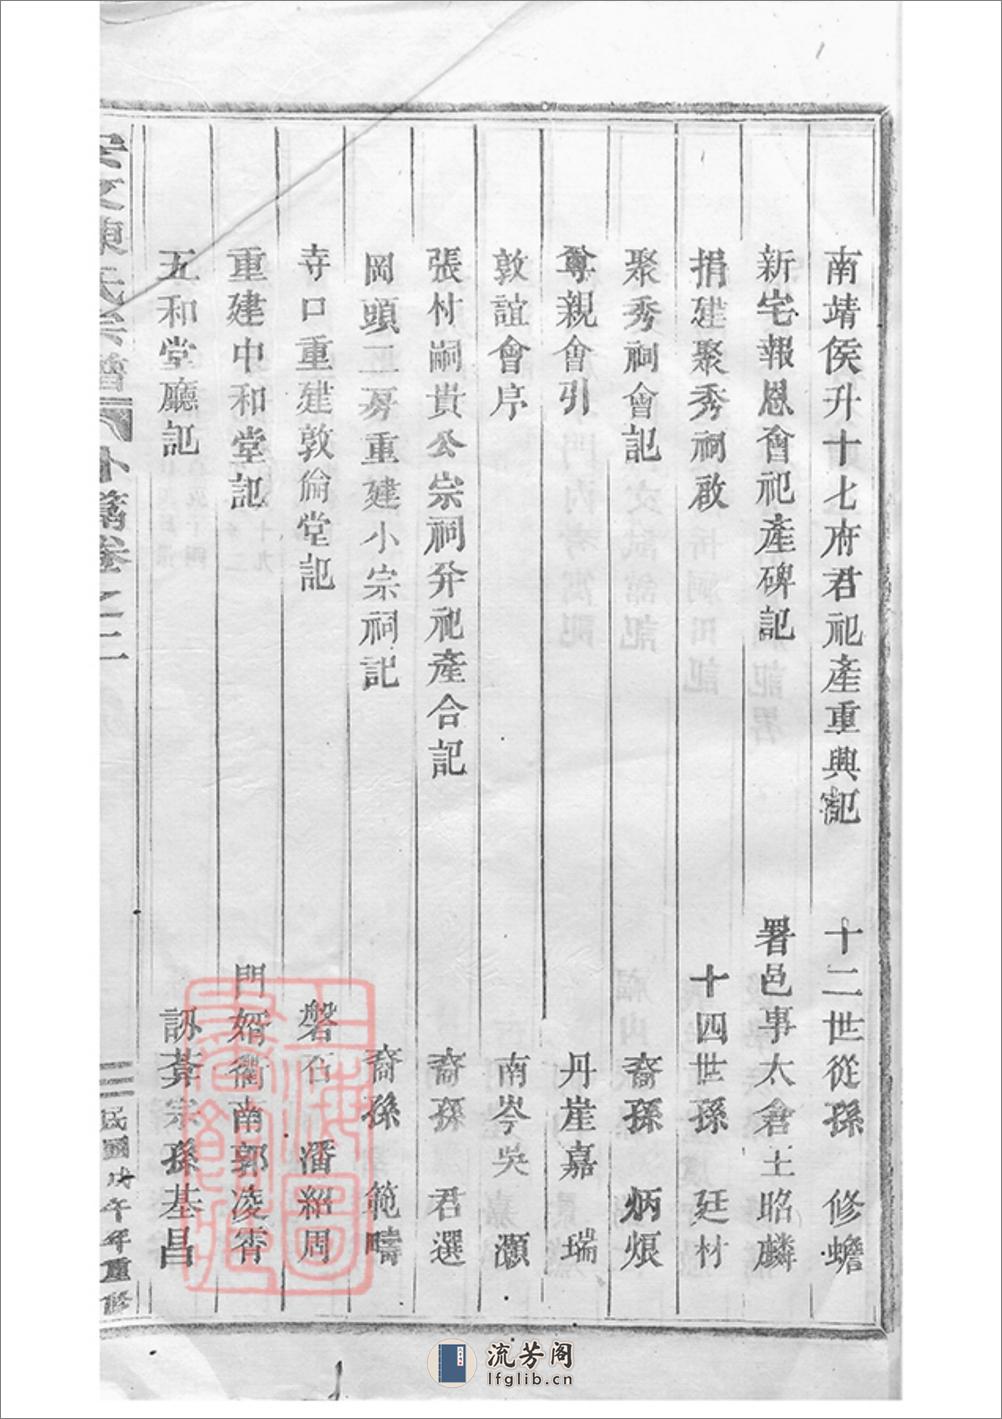 南靖侯升十七府君祀產重興記 十二世從孫 修蟾
新宅報恩會祀產碑記 署邑事太倉王昭麟
捐建聚秀祠啟 十四世孫 廷材
聚秀祠會記 裔孫 炳烺
尊親會引 丹崖嘉 瑞
敦誼會序 南岑吳 灝
張村嗣貴公宗祠并祀產合記 裔孫 君選
岡頭二房重建小宗祠記 裔孫 範疇
寺口重建敦倫堂記 磐石 潘紹周
重建中和堂記 門婿衢南郭凌霄
五和堂廳記 宗孫基昌
陳氏宗譜 外篇卷之二
三 民國戊午年重修
流芳阁
lfglib.cn